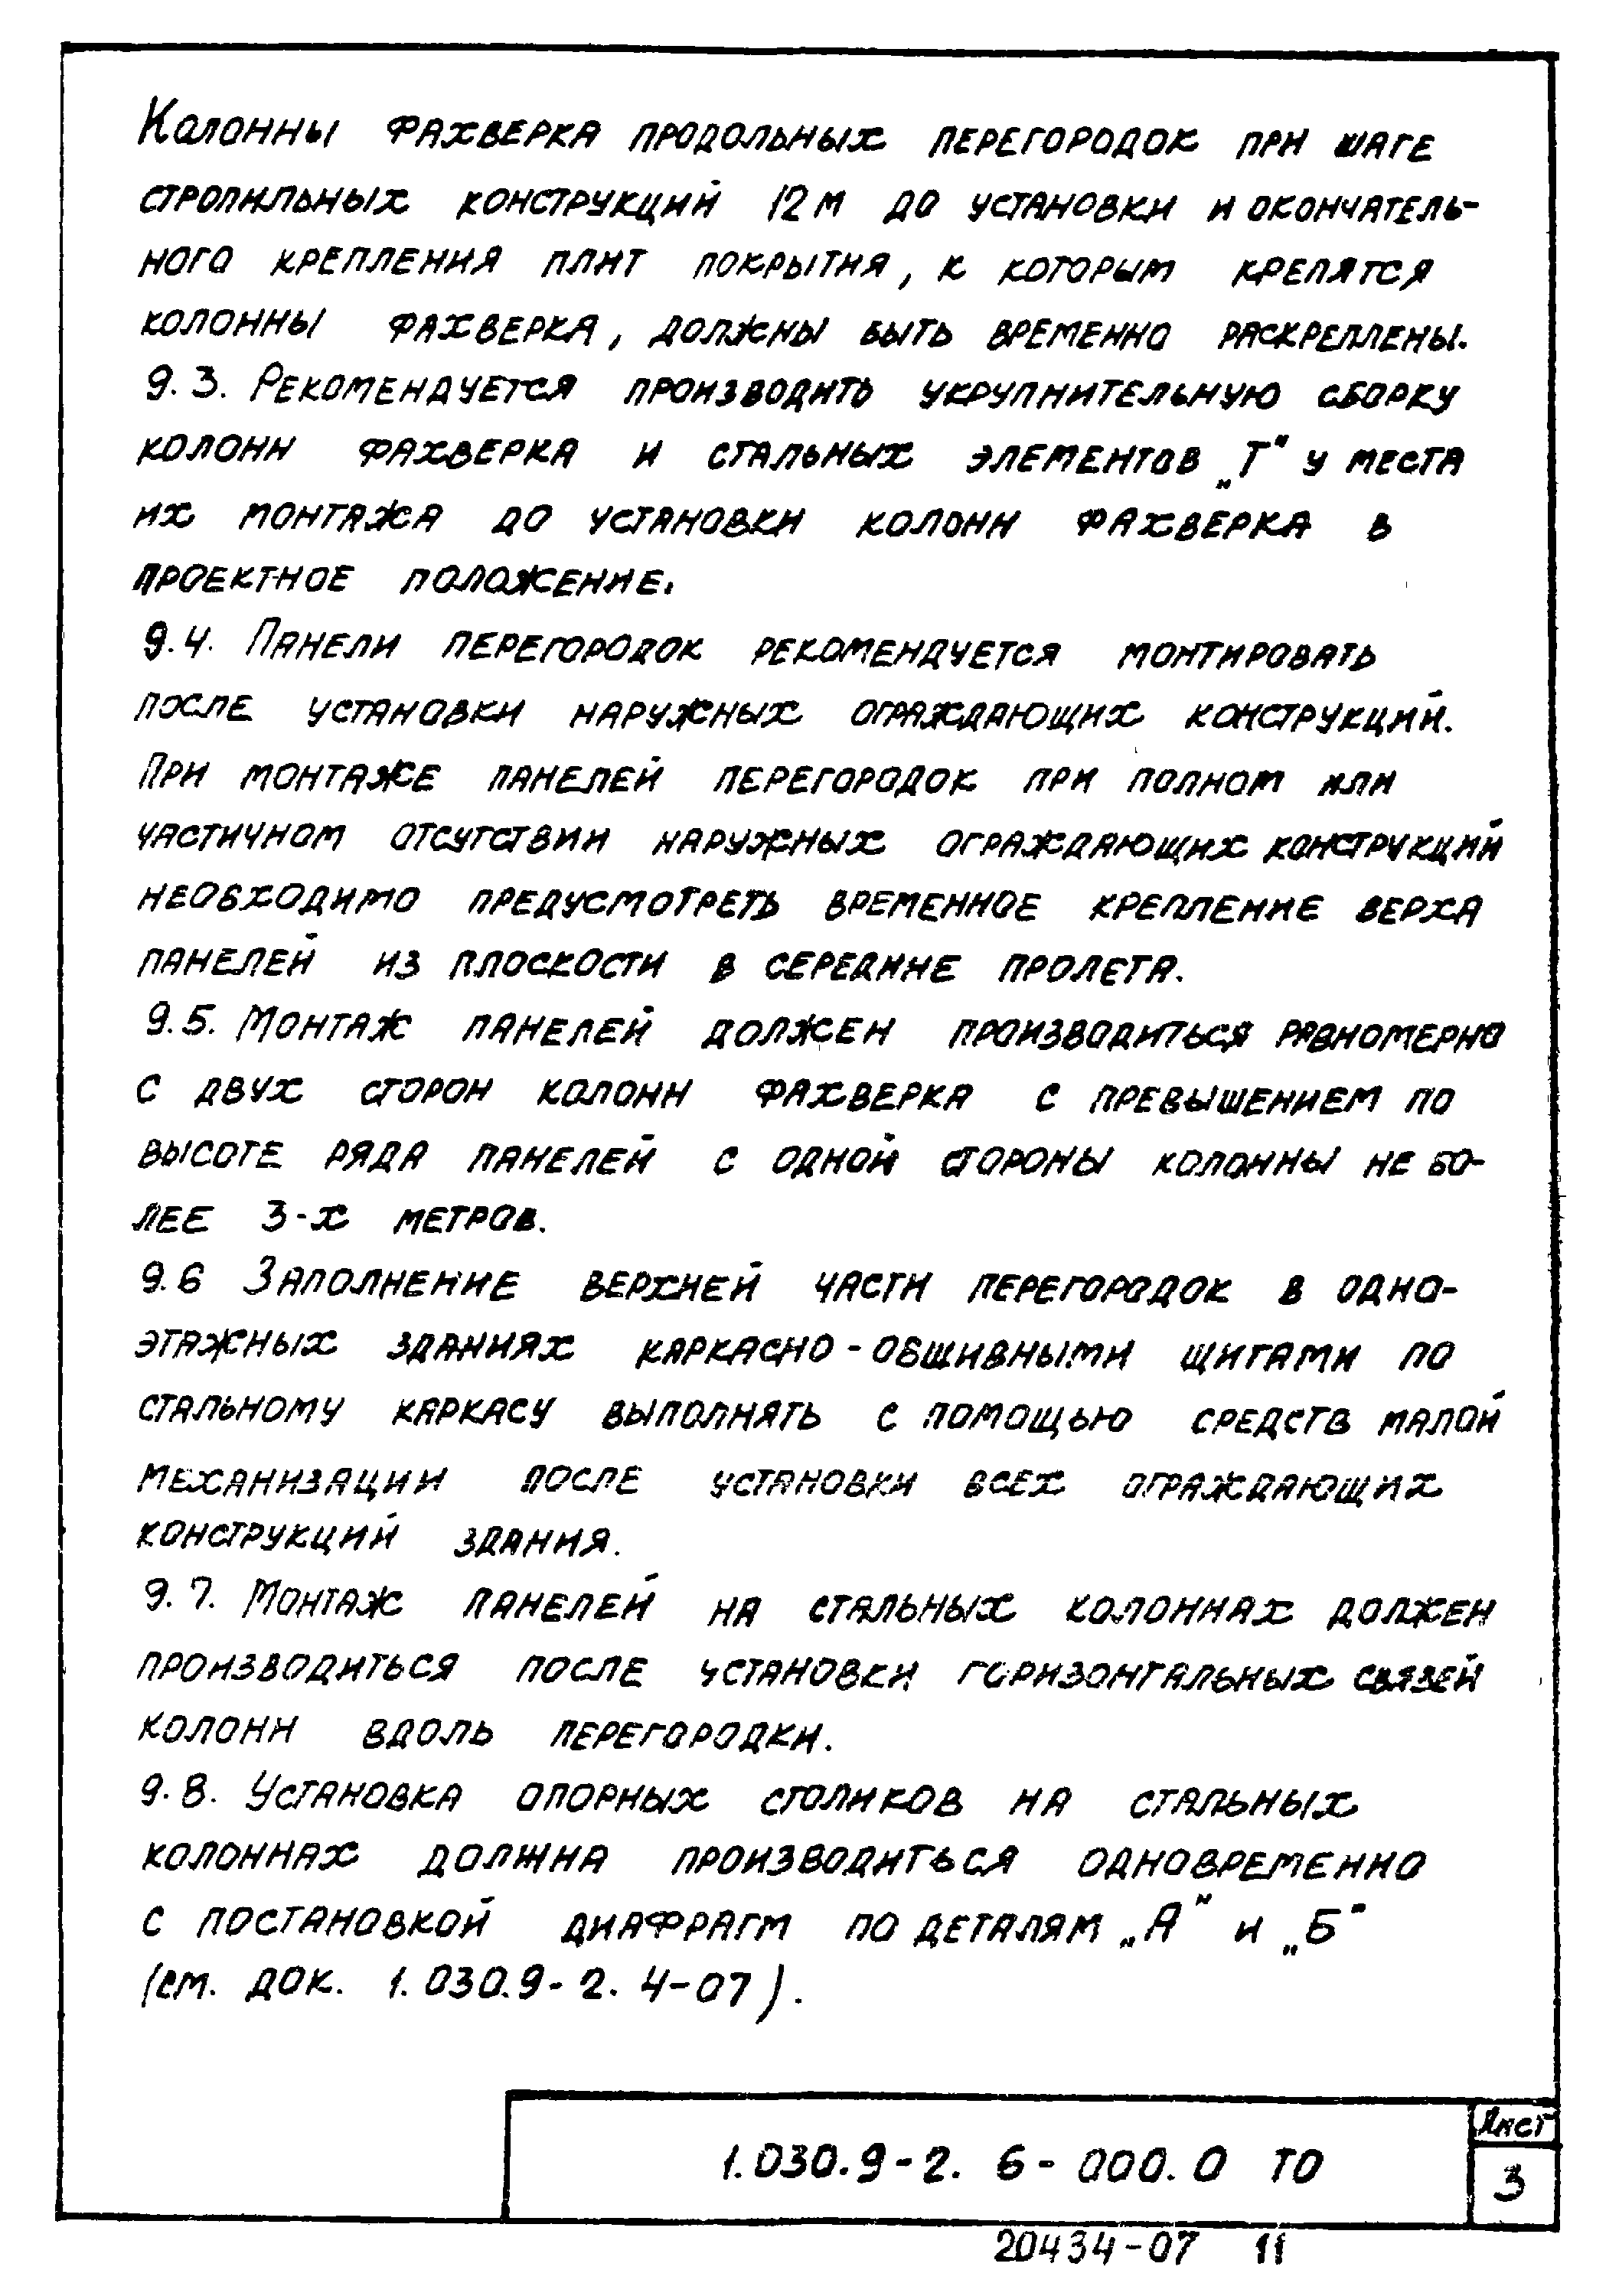 Колонны фахверка продольных перегородок при шаге
стропильных конструкций 12 м до установки и окончатель-
ного крепления плит покрытия, к которым крепятся
колонны фахверка, должны быть временно раскреплены.
9.3. Рекомендуется производить укрупнительную сборку
колонн фахверка и стальных элементов „Т" у места
их монтажа до установки колонн фахверка в
проектное положение.
9.4. Панели перегородок рекомендуется монтировать
после установки наружных ограждающих конструкций.
При монтаже панелей перегородок при полном или
частичном отсутствии наружных ограждающих конструкций
необходимо предусмотреть временное крепление верха
панелей из плоскости в середине пролета.
9.5. Монтаж панелей должен производиться равномерно
с двух сторон колонн фахверка с превышением по
высоте ряда панелей с одной стороны колонны не бо-
лее 3-х метров.
9.6 Заполнение верхней части перегородок в одно-
этажных зданиях каркасно-обшивными щитами по
стальному каркасу выполнять с помощью средств малой
механизации после установки всех ограждающих
конструкций здания.
9.7. Монтаж панелей на стальных колоннах должен
производиться после установки горизонтальных связей
колонн вдоль перегородки.
9.8. Установка опорных столиков на стальных
колоннах должна производиться одновременно
с постановкой диафрагм по деталям „А" и „Б"
(см. док. 1.030.9-2. 4-07).
Лист
1.030.9-2. 6-000.0 ТО
3
20434-07 11